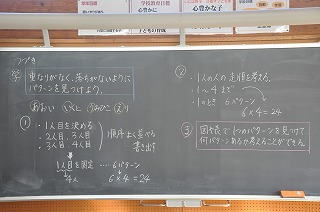 つづき
学
重なりがなく、落ちがないように
パターンを見つけよう。
あおい いくと うみひこ えり
①
・1人目を決める
・2人目、3人目
・3人目 4人目
順序よく並べる
書き出す
1人目を固定 …… 6パターン
4人
6×4=24
②
・1人の人の走順を考える。
・1〜4まで
・1のとき 6パターン
6×4=24
③
図や表で1つのパターンを見つけて
何パターンあるか考えることができる。
学校教育目標
心豊かな子
心豊かに